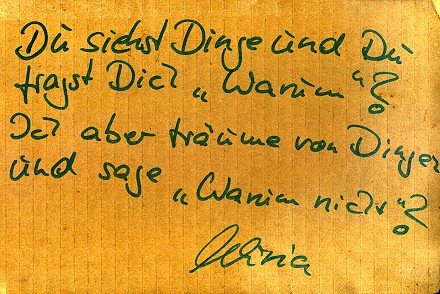 Du siehst Dinge und Du
fragst Dich „Warum“?
Ich aber träume von Dingen
und sage „Warum nicht“?